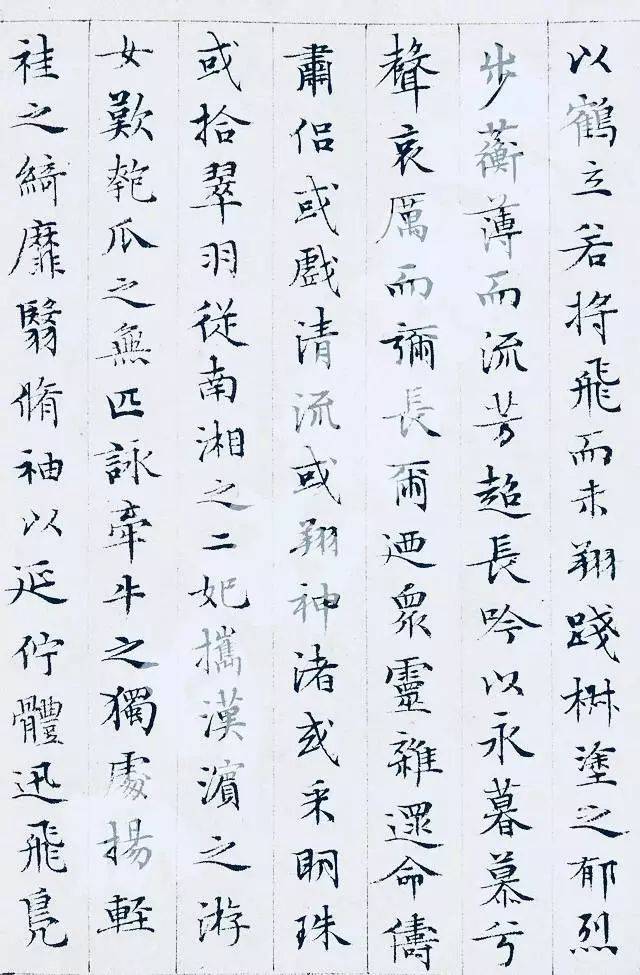 以鶴立若將飛而未翔踐椒塗之郁烈
步蘅薄而流芳超長吟以永暮慕兮
聲哀厲而彌長爾迺衆靈雜遝命儔
肅侶或戲清流或翔神渚或采明珠
或拾翠羽從南湘之二妃攜漢濱之游
女歎匏瓜之無匹詠牽牛之獨處揚輕
袿之綺靡翳脩袖以延佇體迅飛鳧